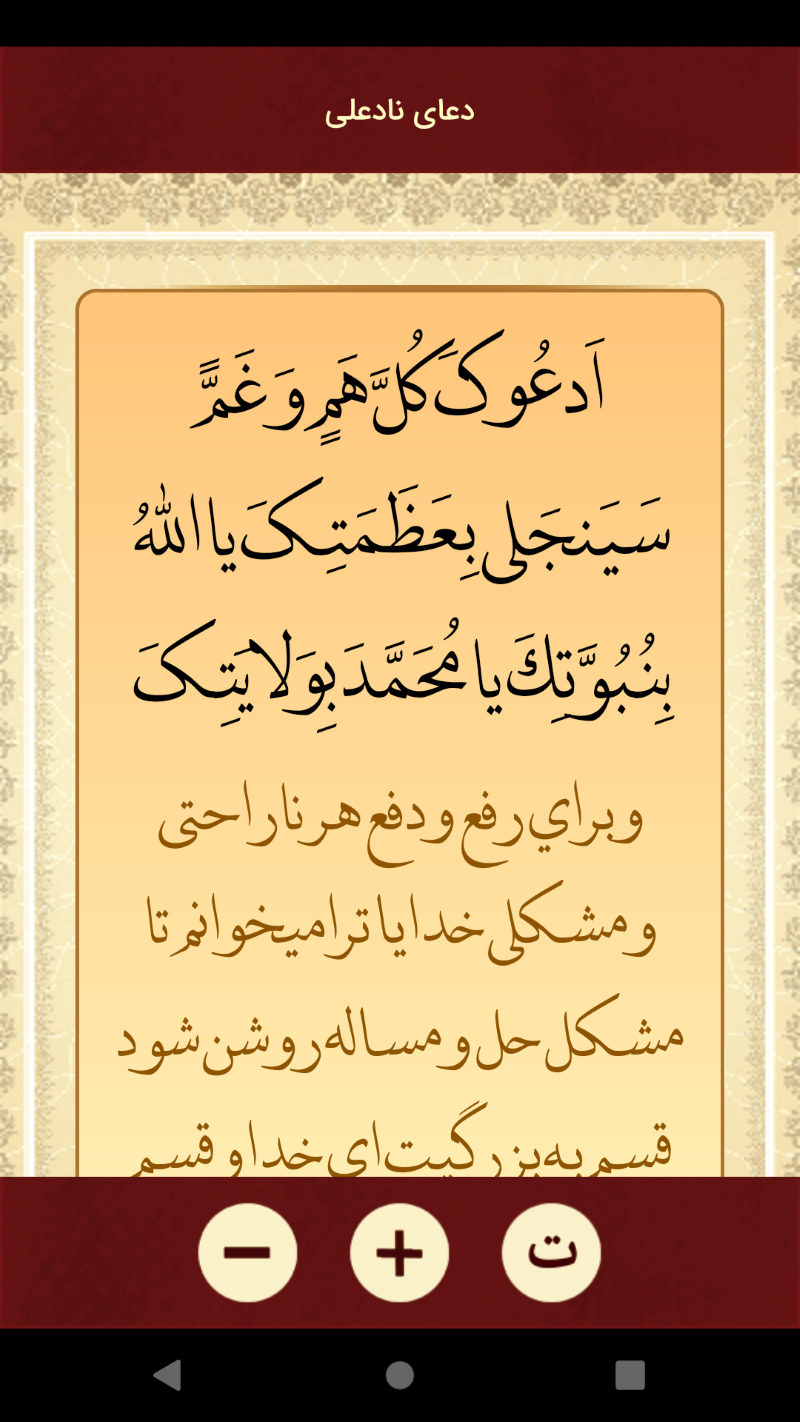 دعای نادعلی
اَدعُوکَ کُلَّ هَمٍ وَ غَمًّ
سَیَنجَلی بِعَظَمَتِکَ یا اللهُ
بِنُبُوَّتِكَ یا مُحَمَّدَ بِوَلایَتِکَ
و براي رفع و دفع هر ناراحتی
و مشکلی خدایا ترا میخوانم تا
مشکل حل و مساله روشن شود
قسم به بزرگیت ای خدا و قسم
ت